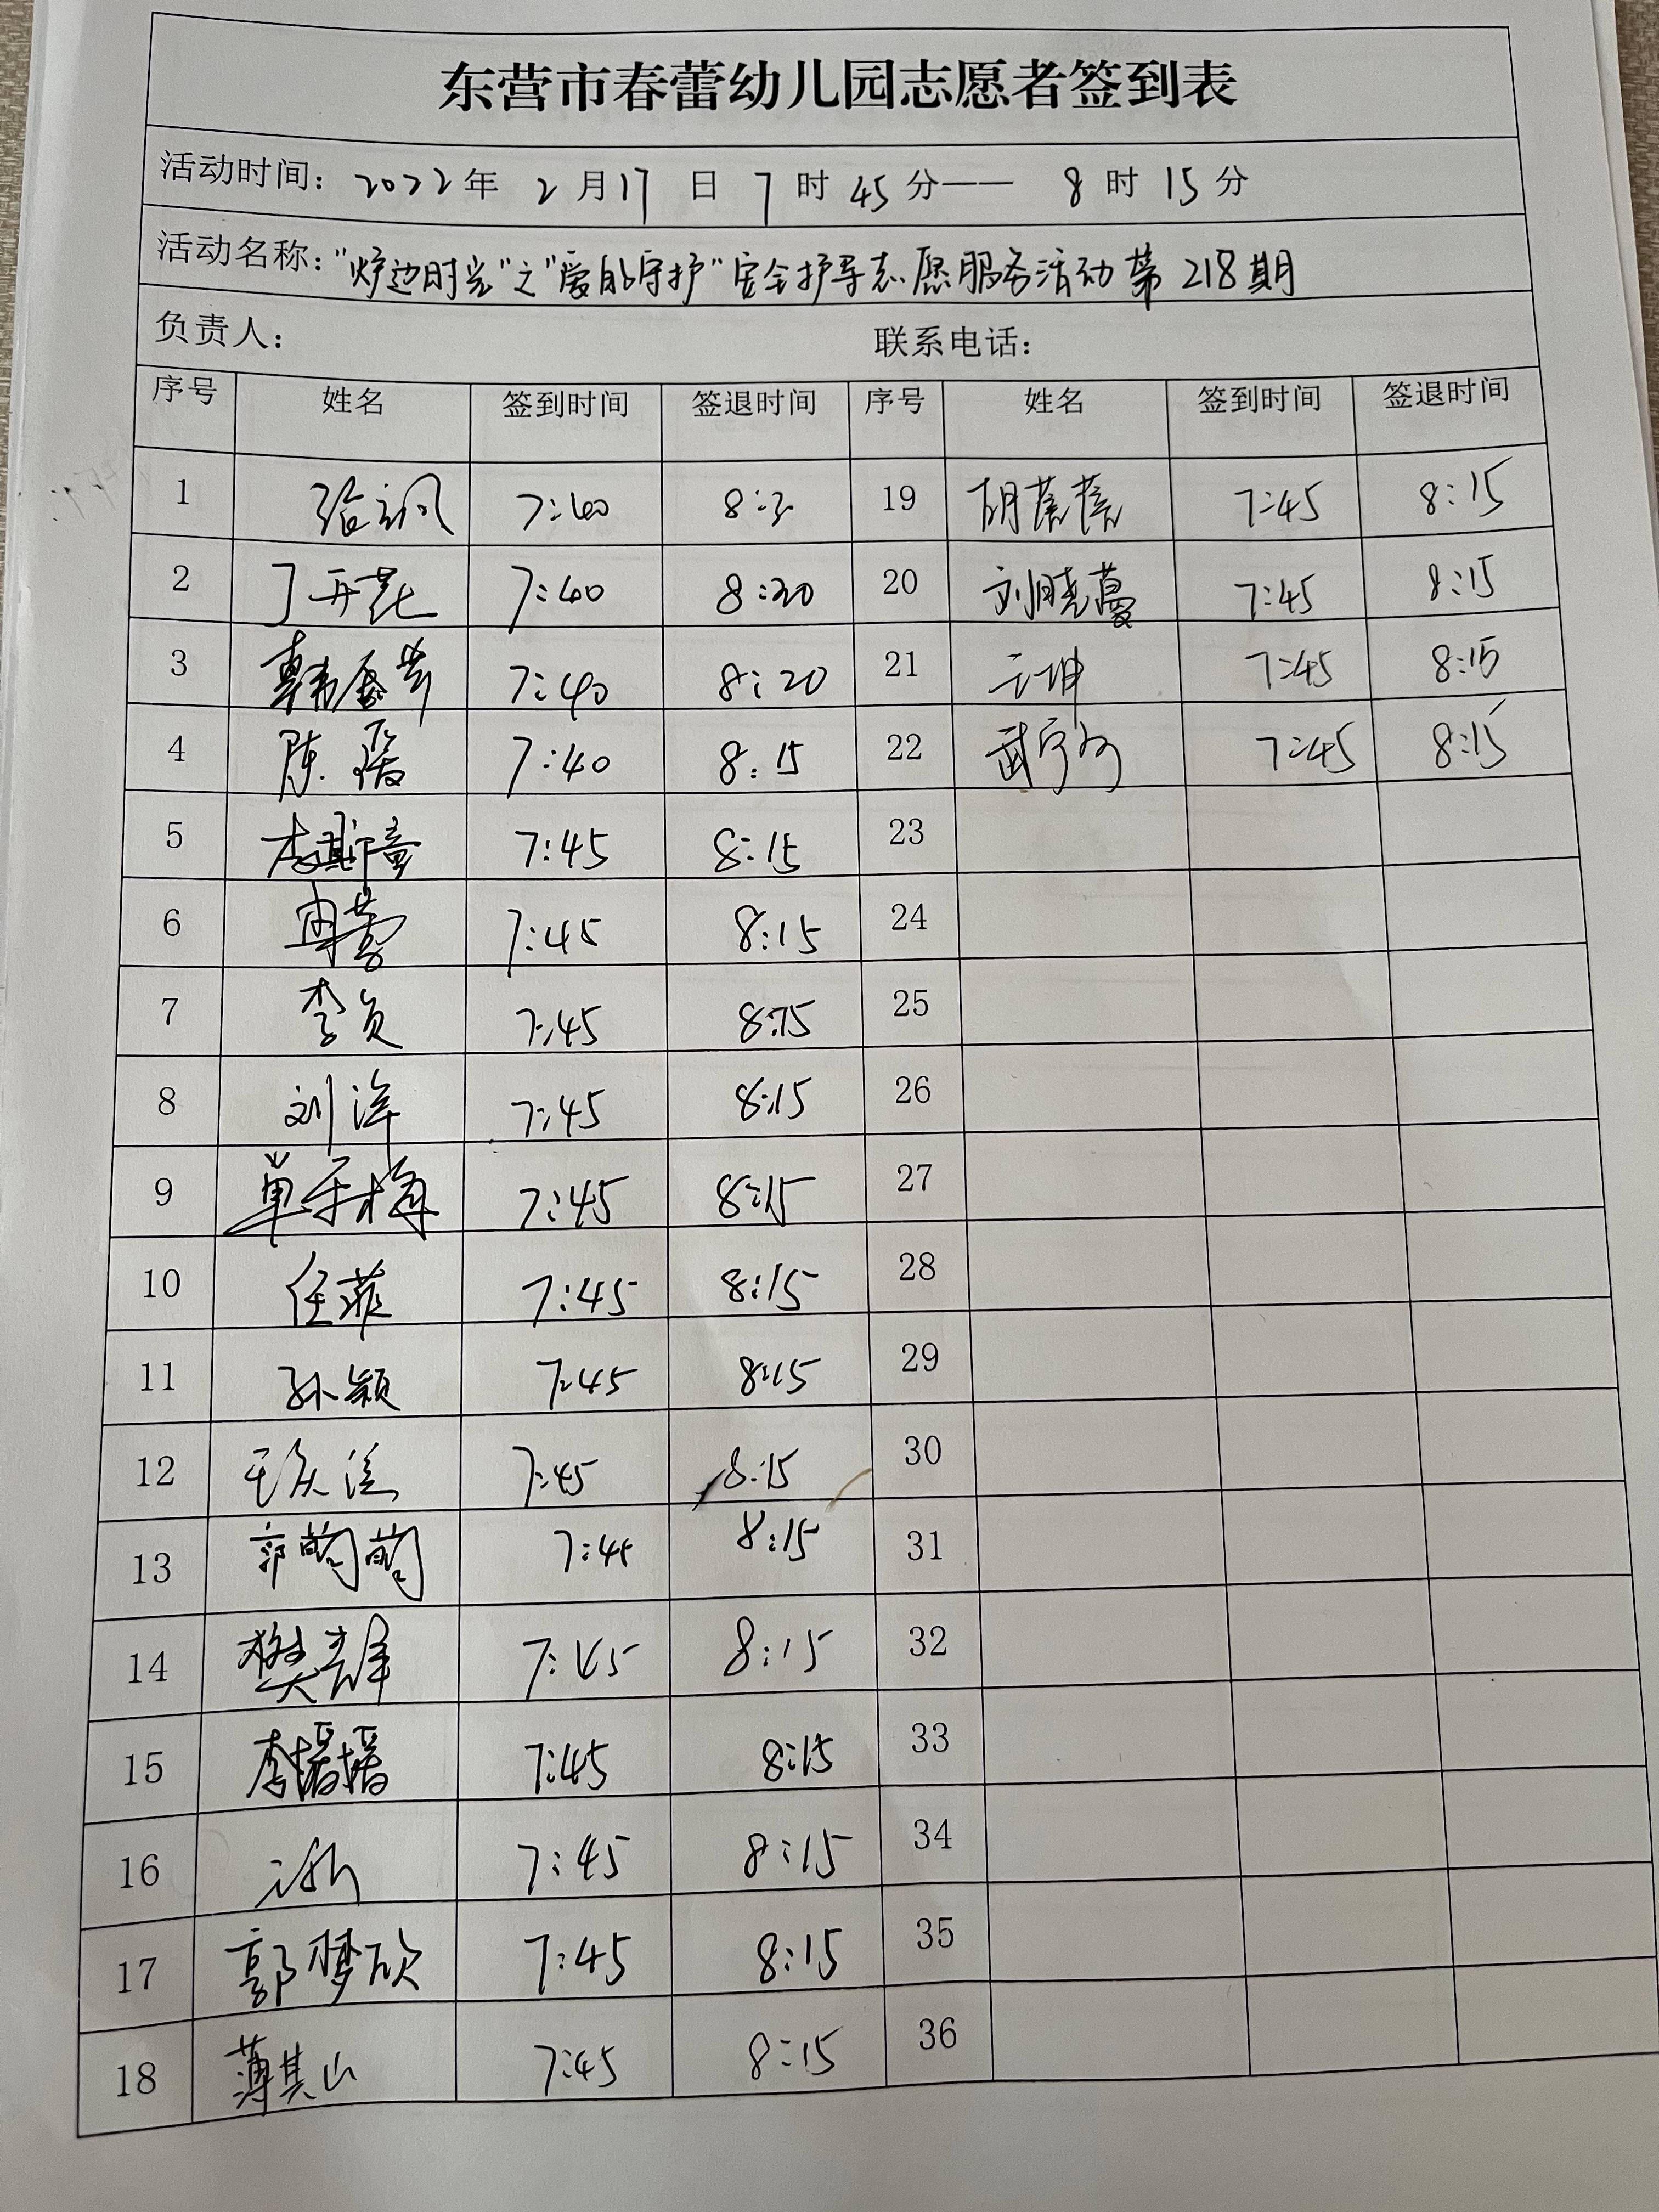 东营市春蕾幼儿园志愿者签到表
活动时间：2022年 2月17日 7时45分—— 8时15分
活动名称："炉边时光"之"爱的守护"安全护导志愿服务活动第218期
负责人： 联系电话：
序号 姓名 签到时间 签退时间 序号 姓名 签到时间 签退时间
1 7:40 19 7:45 8:15
2 丁开花 7:40 8:20 20 刘晓蔓 7:45 8:15
3 7:40 8:20 21 王坤 7:45 8:15
4 陈 7:40 8:15 22 7:45 8:15
5 李斯童 7:45 8:15 23
6 7:45 8:15 24
7 李贞 7:45 8:15 25
8 刘洋 7:45 8:15 26
9 7:45 8:15 27
10 任菲 7:45 8:15 28
11 孙颖 7:45 8:15 29
12 7:45 8:15 30
13 郭萌萌 7:45 8:15 31
14 7:45 8:15 32
15 7:45 8:15 33
16 7:45 8:15 34
17 郭梦欣 7:45 8:15 35
18 薄其山 7:45 8:15 36